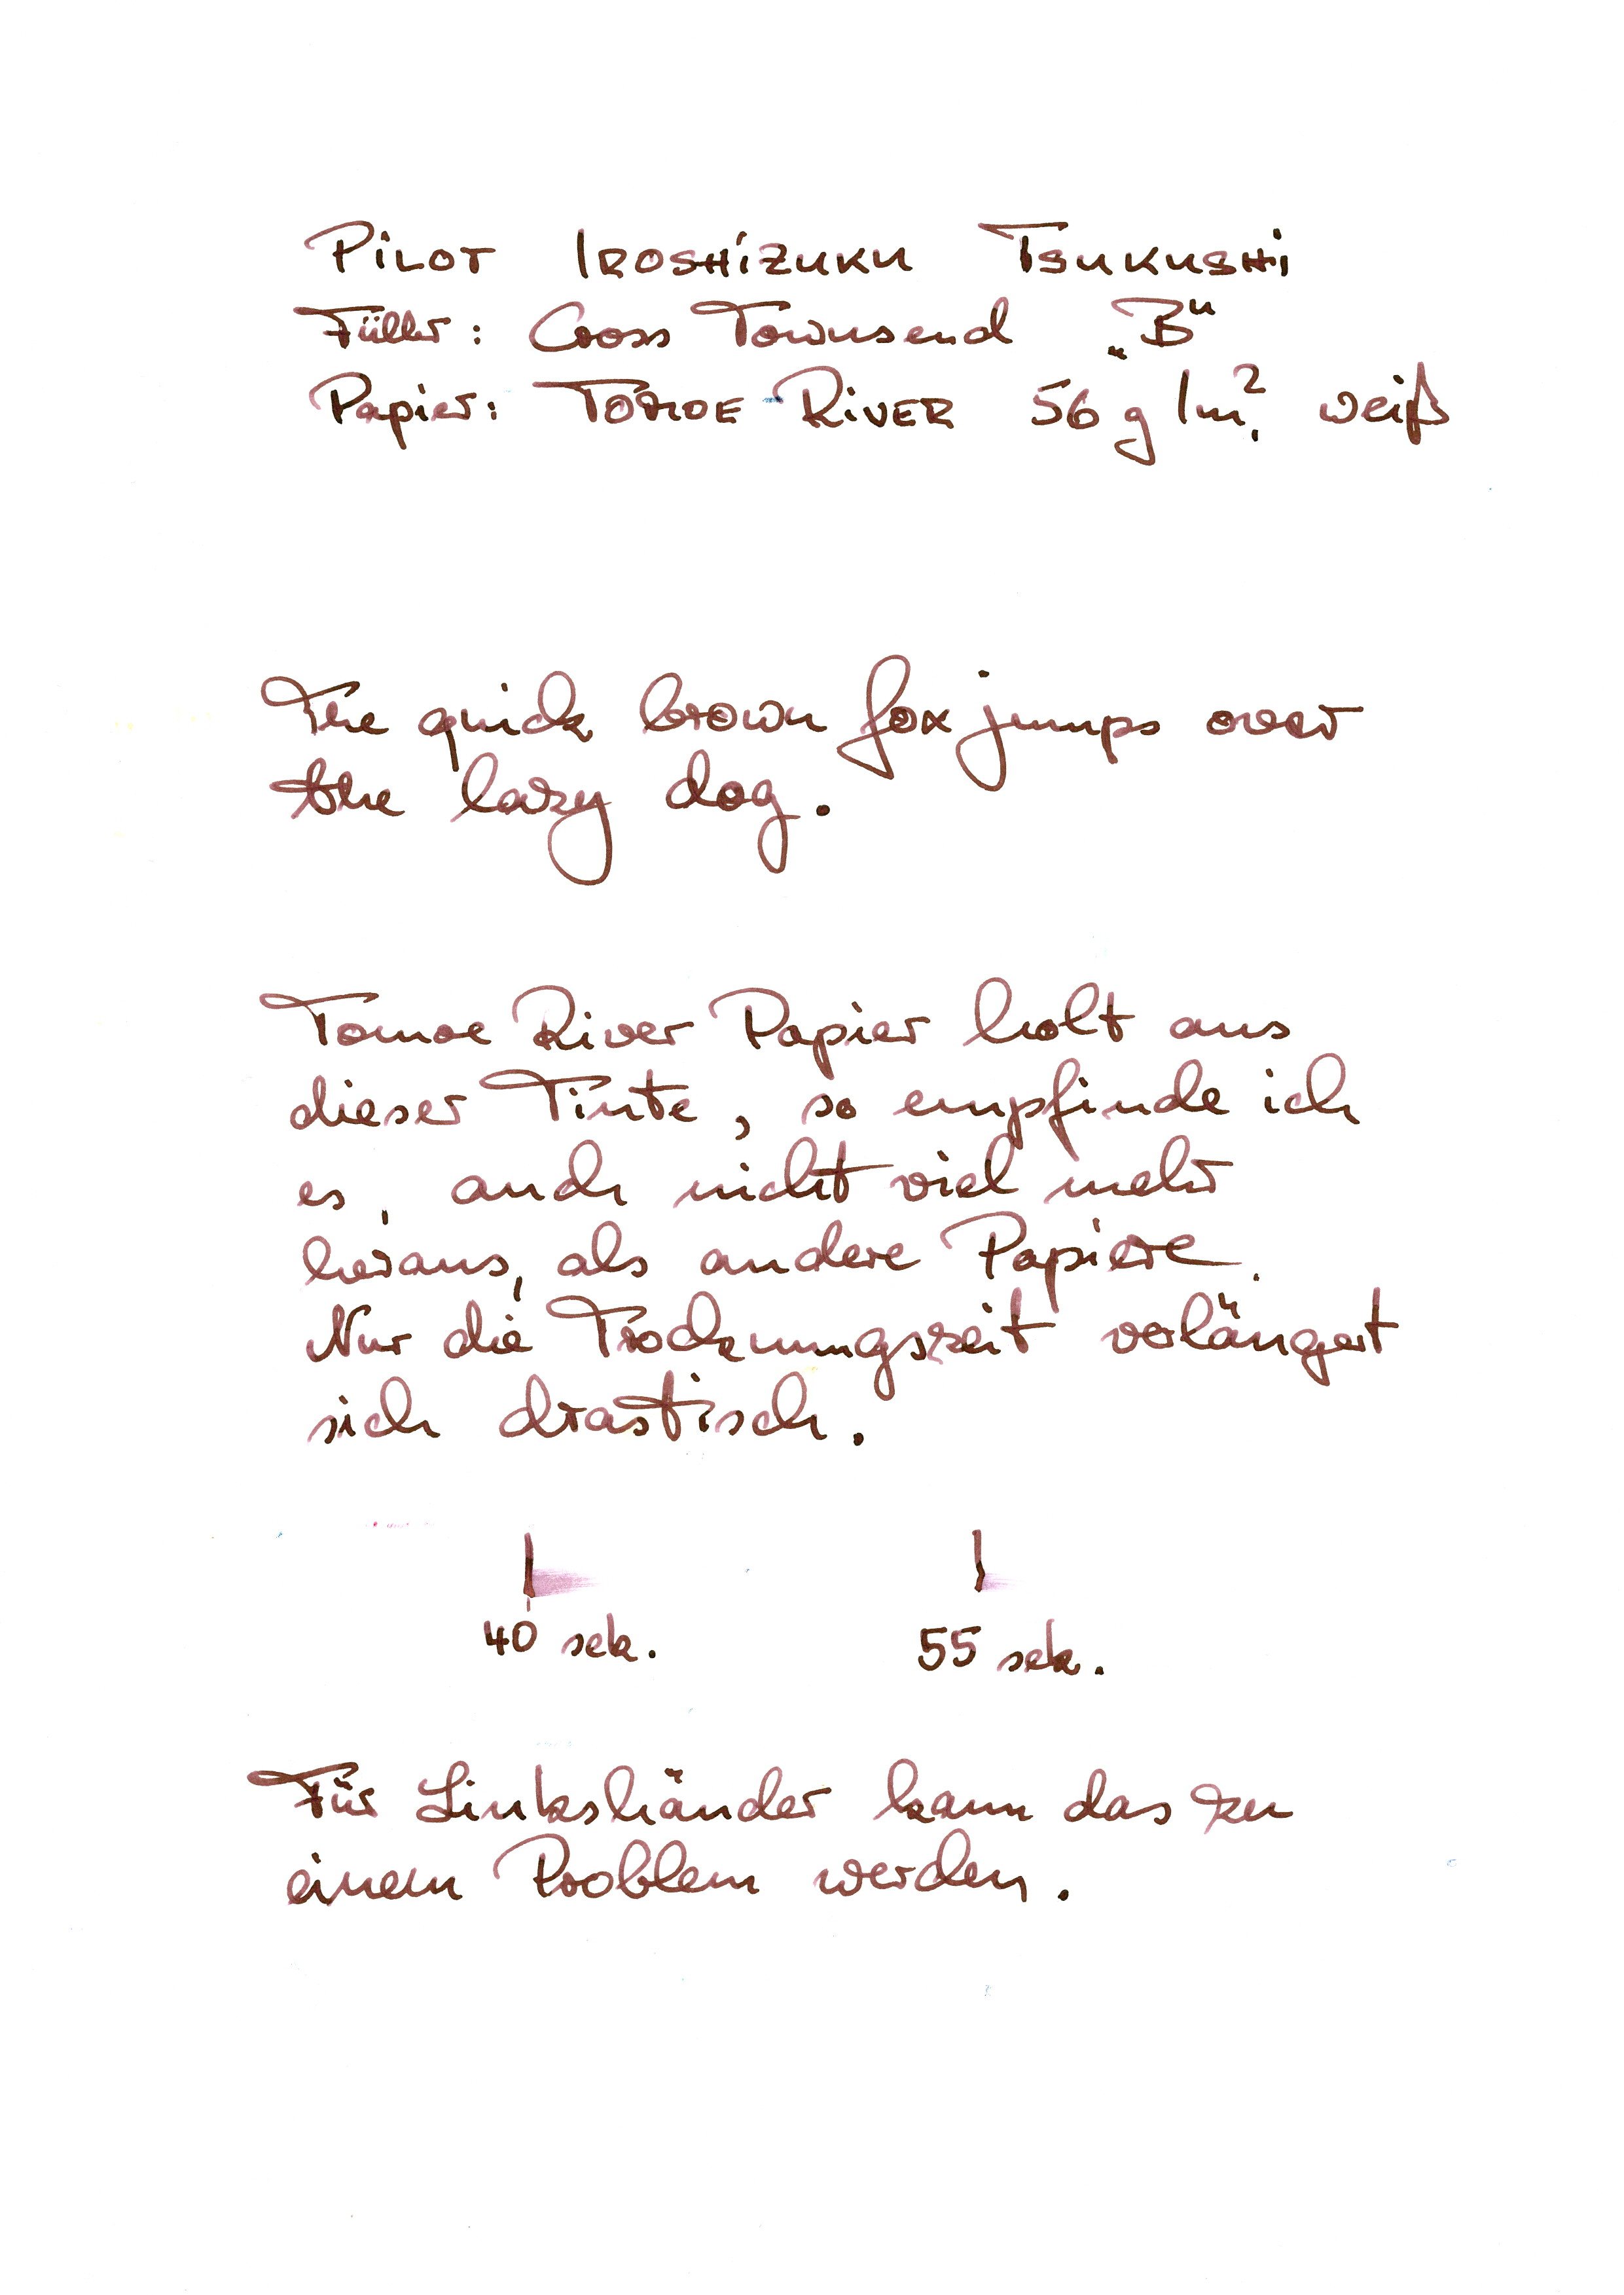 PILOT IROSHIZUKU TSUKUSHI
Füller: Cross Townsend „B“
Papier: TOMOE RIVER 56 g/m², weiß
The quick brown fox jumps over
the lazy dog.
Tomoe River Papier holt aus
dieser Tinte, so empfinde ich
es, auch nicht viel mehr
heraus, als andere Papiere.
Nur die Trocknungszeit verlängert
sich drastisch.
40 sek. 55 sek.
Für Linkshänder kann das zu
einem Problem werden.